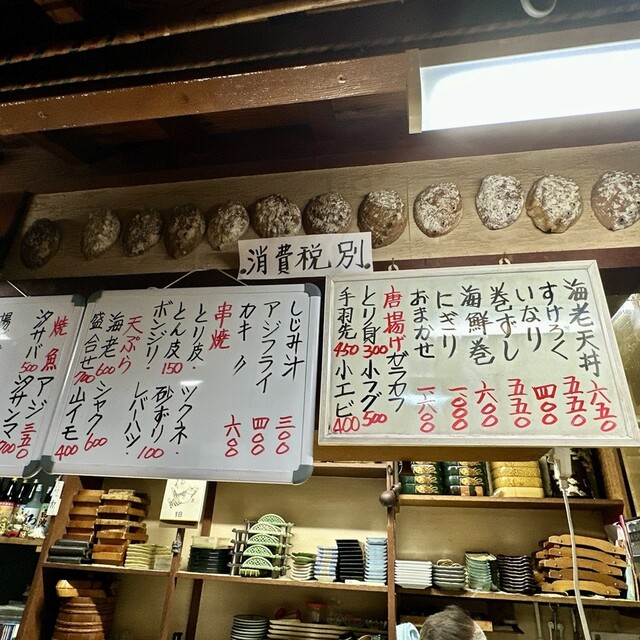 消費税別
海老天丼 六五〇
すけろく 五五〇
いなり 四〇〇
巻ずし 五五〇
海鮮巻 六〇〇
にぎり 一〇〇〇
おまかせ 一六〇〇
唐揚げ
ガラカブ 500
とり身 300
小フグ
手羽先 450
小エビ 400
しじみ汁 三〇〇
アジフライ 四〇〇
カキ 〃 六〇〇
串焼
とり皮・
ツクネ・
とん皮 150
砂ずり
ボンジリ・
レバーハツ・ 100
天ぷら
海老 600
シャク 600
盛合せ 700
山イモ 400
焼魚
アジ 三五〇
タサバ 500
タサンマ